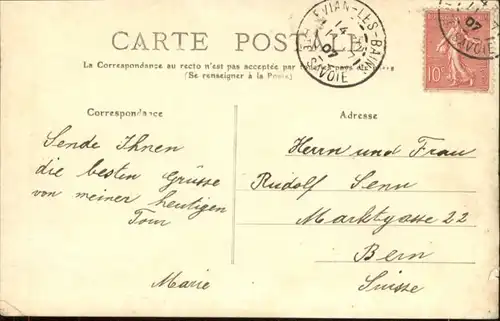 CARTE POSTALE
La Correspondance au recto n'est pas acceptée par
(Se renseigner à la Poste)
EVIAN-LES-BAINS
14
07
HTE SAVOIE
10
07
SAVOIE
Correspondance
Adresse
Sende Ihnen
die besten Grüsse
von meiner heutigen
Tour
Marie
Herrn und Frau
Rudolf Senn
Marktgasse 22
Bern
Suisse